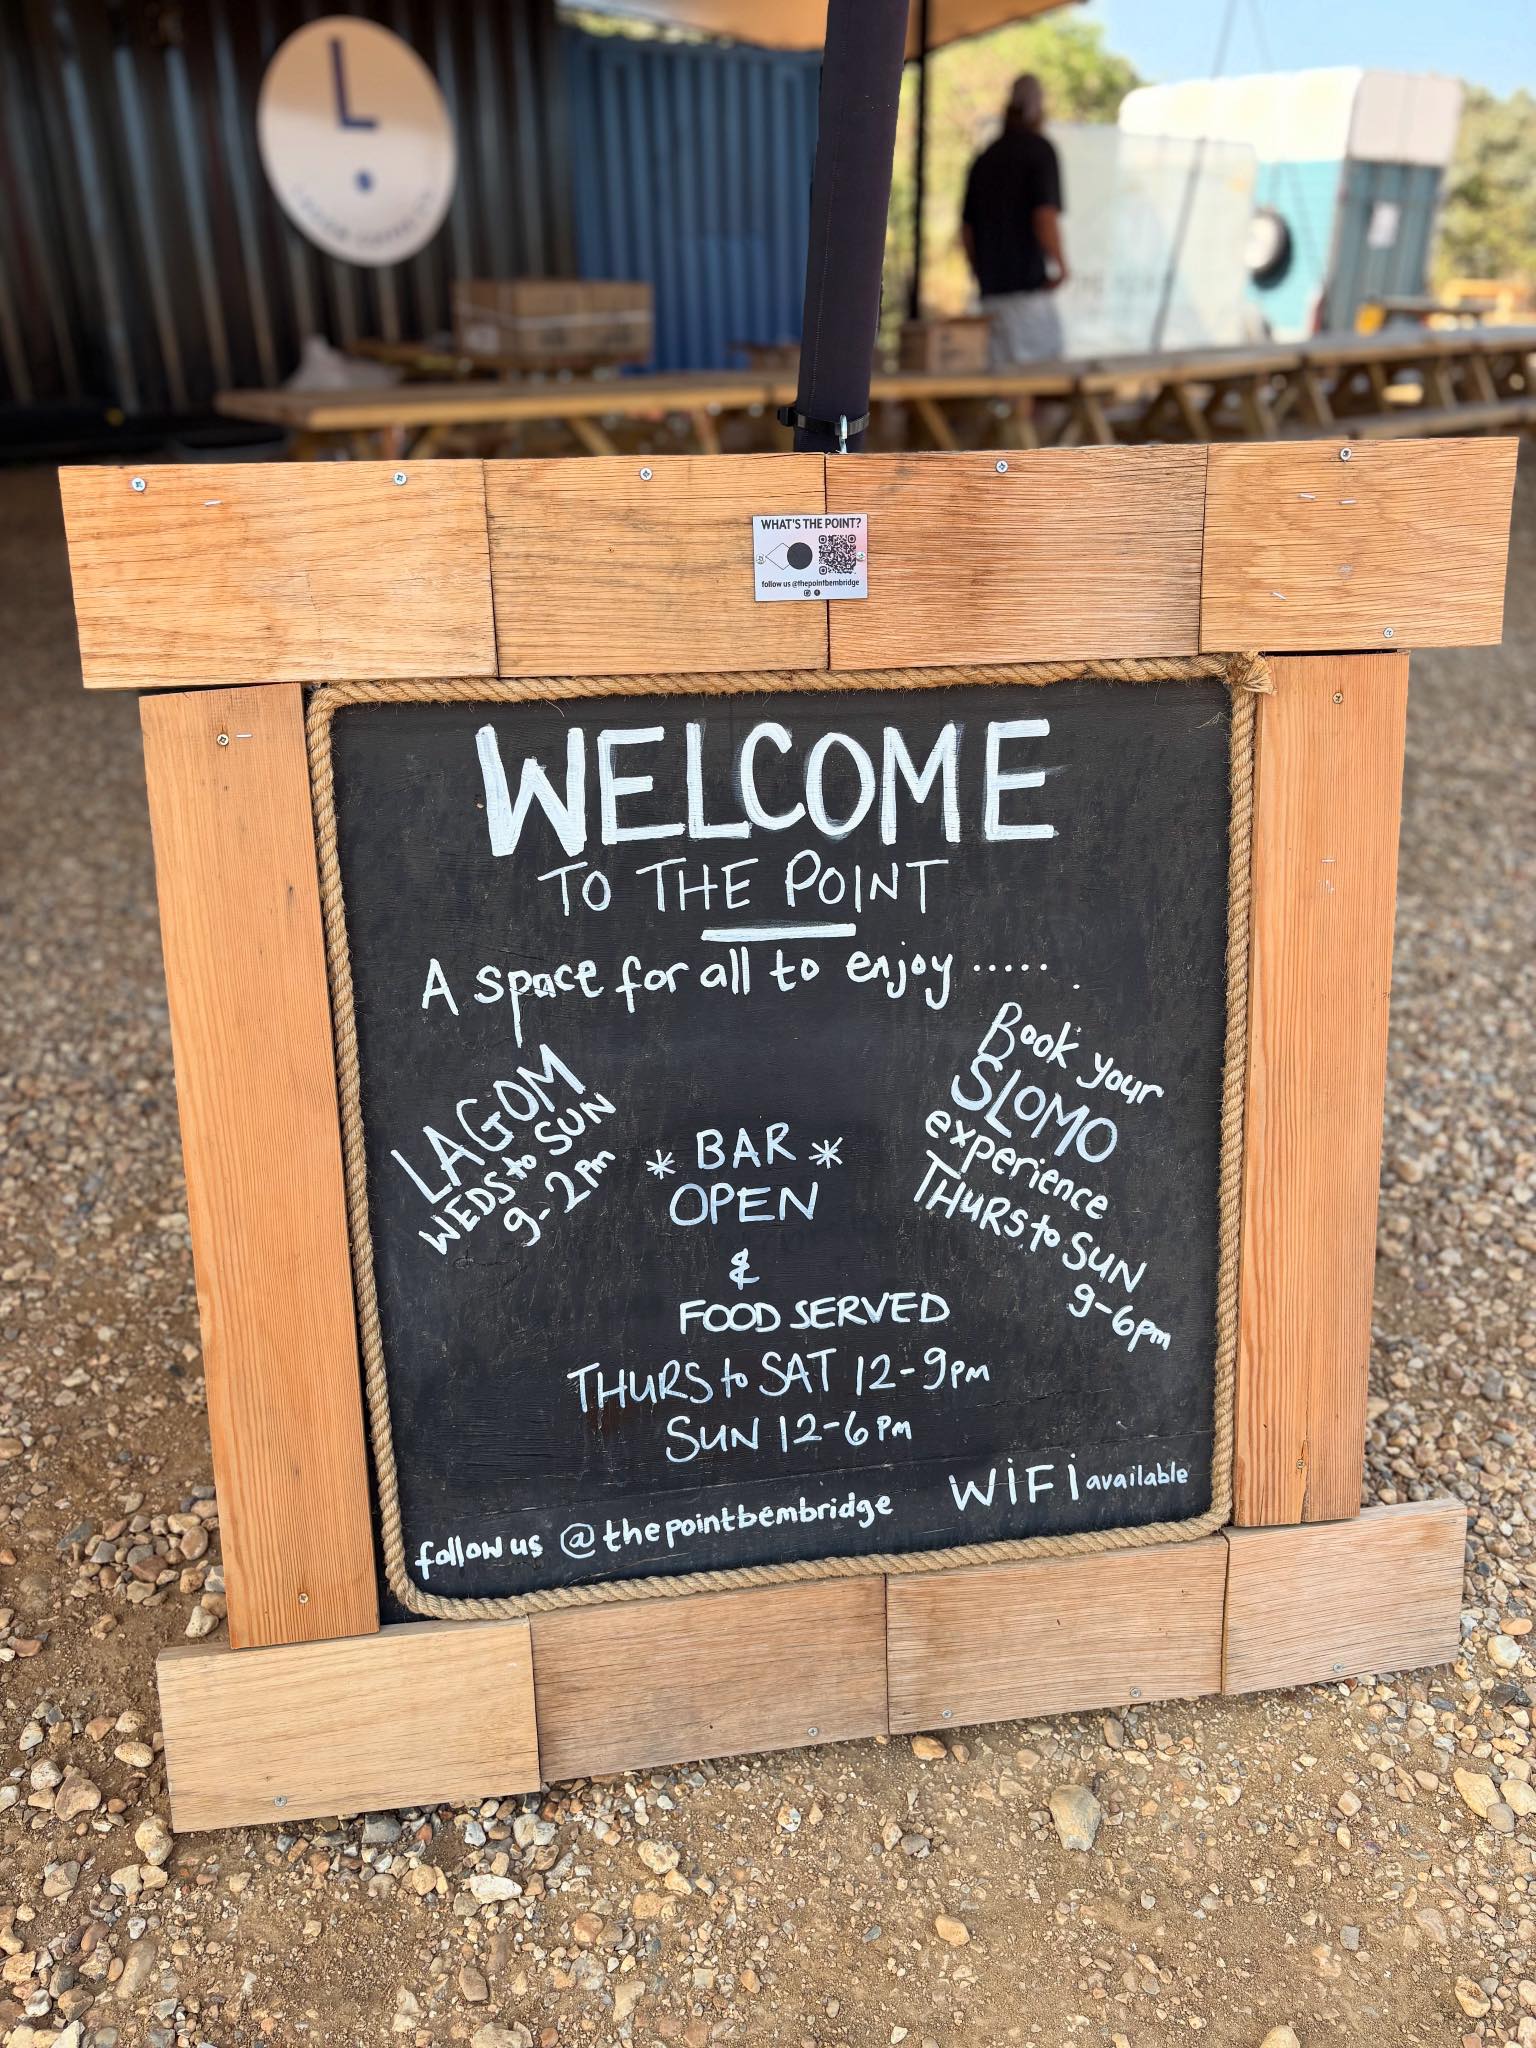 L
WHAT'S THE POINT?
follow us @thepointbembridge
WELCOME
TO THE POINT
A space for all to enjoy .....
LAGOM
WEDS to SUN
9-2pm
Book your
SLOMO
experience
THURS to SUN
9-6pm
* BAR *
OPEN
&
FOOD SERVED
THURS to SAT 12-9pm
SUN 12-6pm
WiFi available
follow us @thepointbembridge